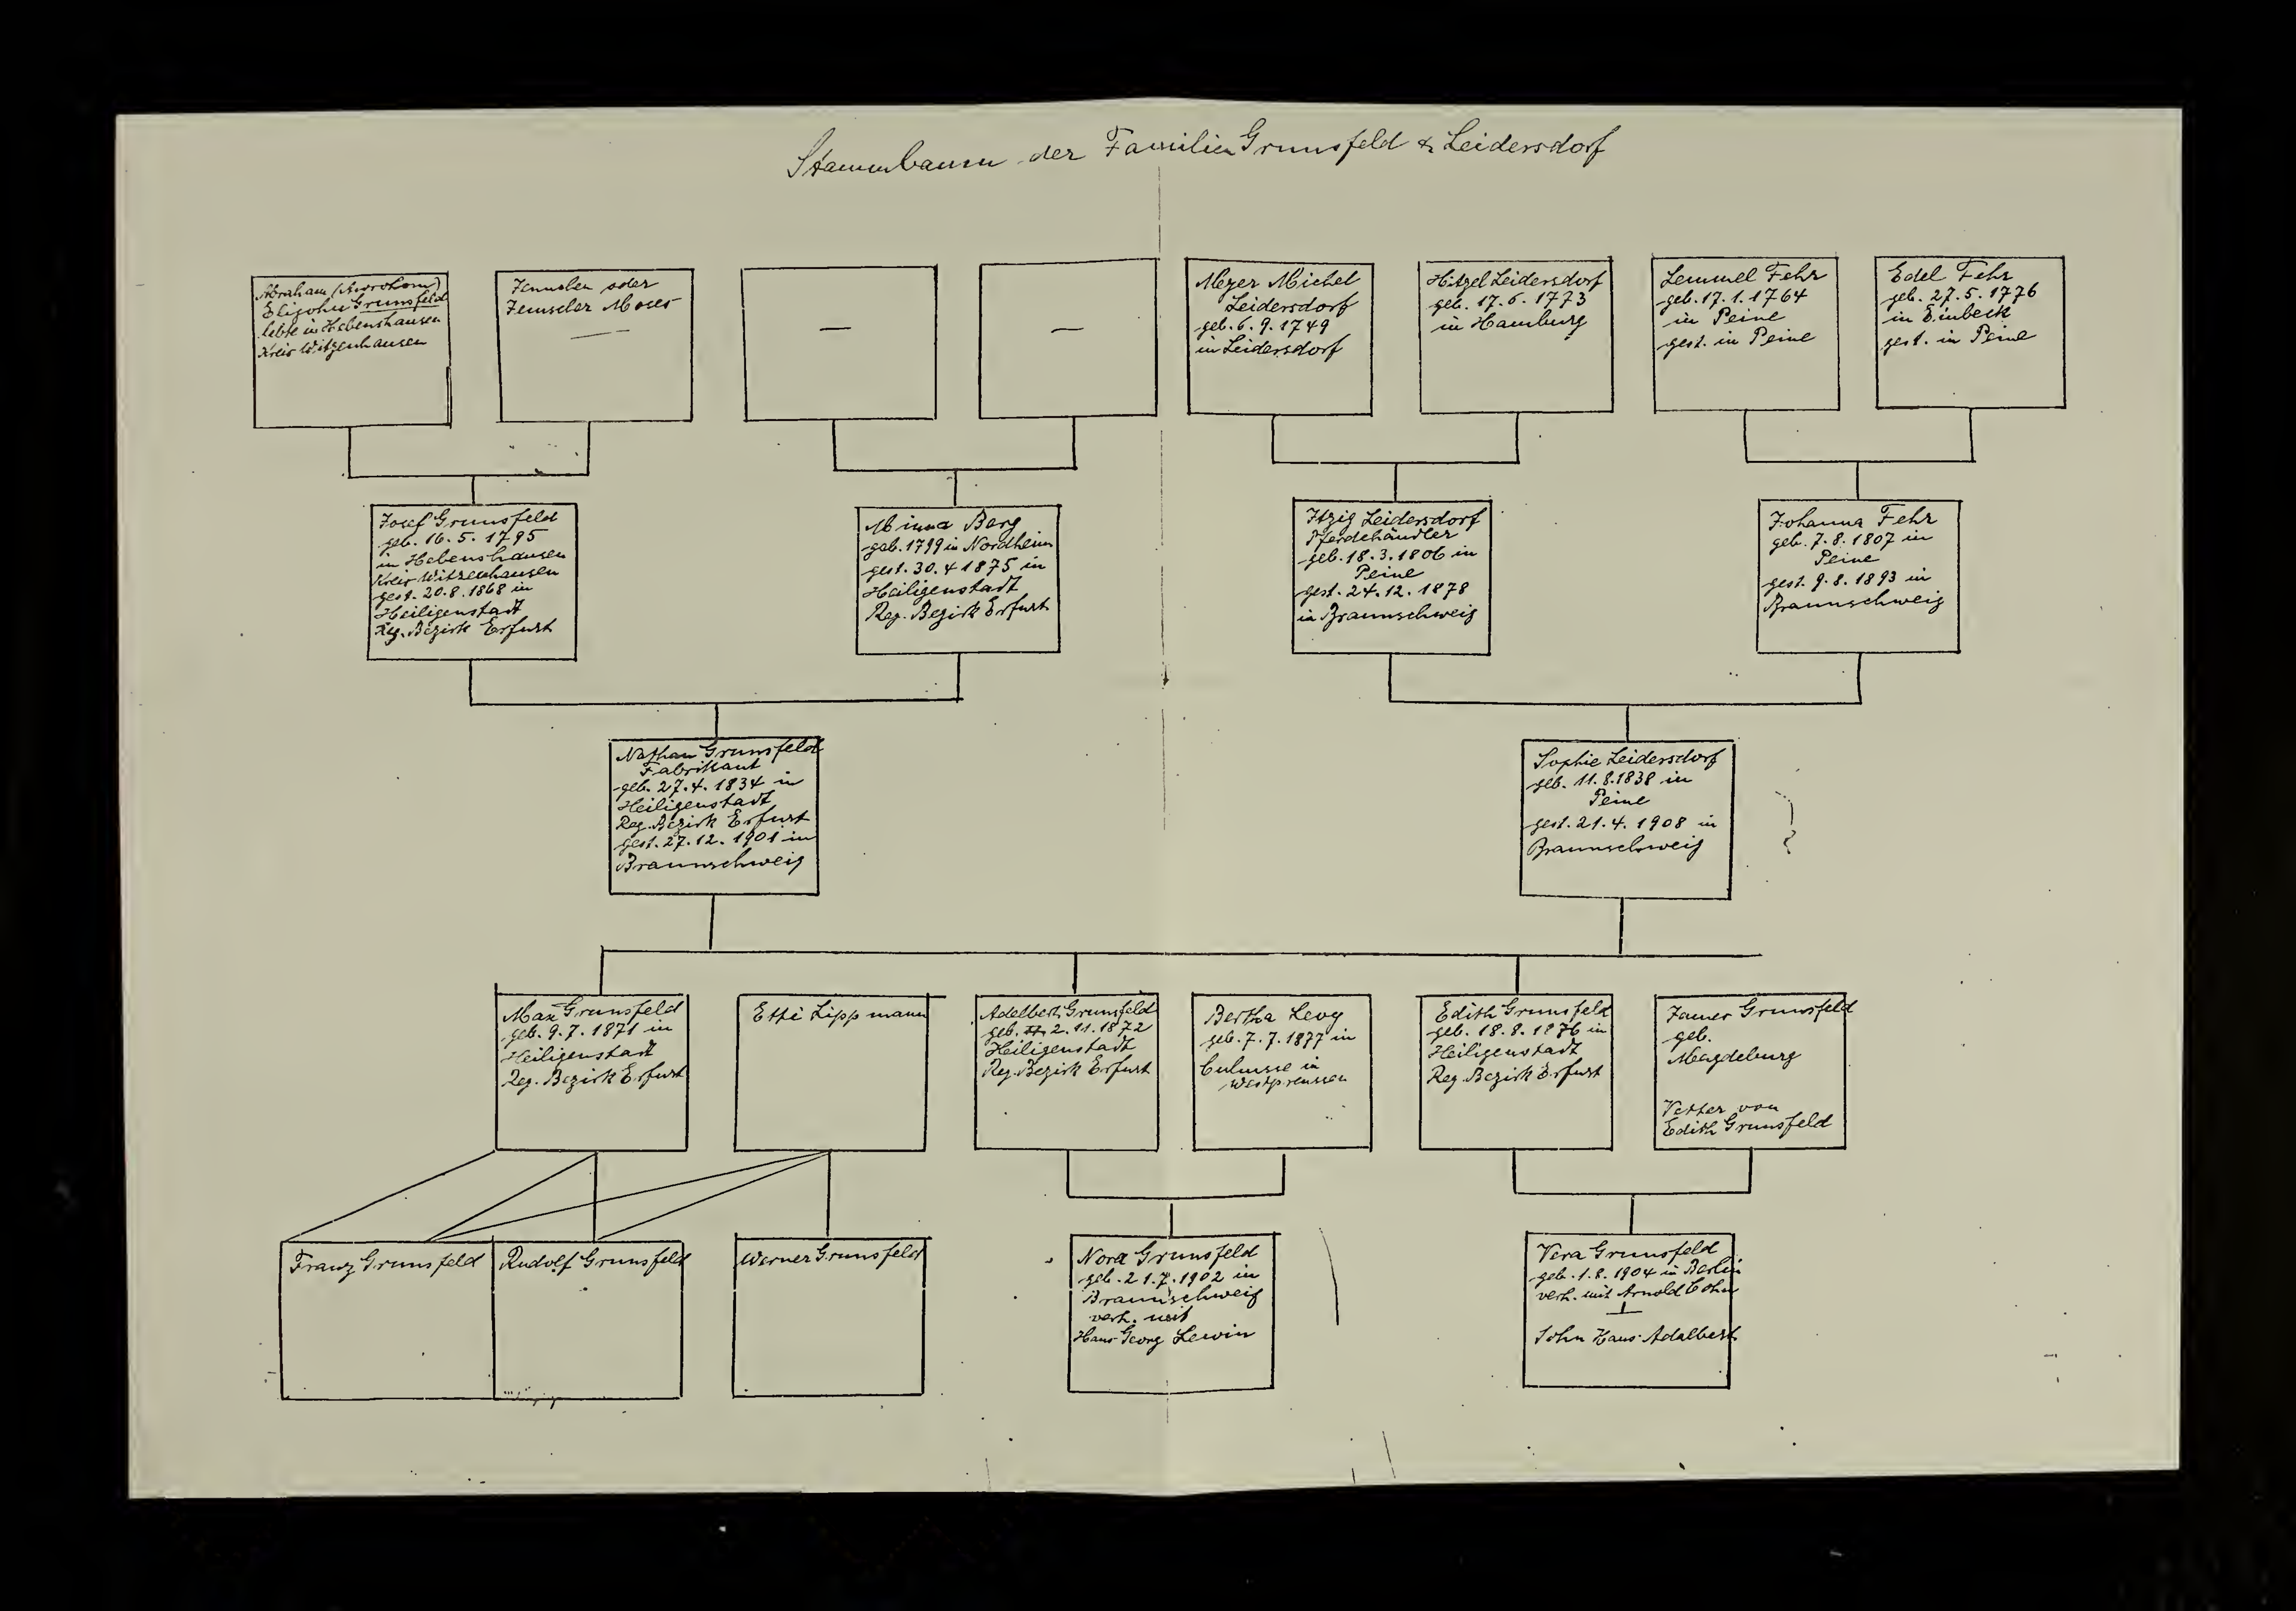 Stammbaum der Familien Grunsfeld & Leidersdorf
Abraham (Awroham)
Elijohu Grunsfeld
lebte in Hebenshausen
Kreis Witzenhausen
oder
Moses
—
—
—
Meyer Michel
Leidersdorf
geb. 6. 9. 1749
in Leidersdorf
Hitzel Leidersdorf
geb. 17. 6. 1773
in Hamburg
Lemmel Fehr
geb. 17. 1. 1764
in Peine
gest. in Peine
Edel Fehr
geb. 27. 5. 1776
in Einbeck
gest. in Peine
Josef Grunsfeld
geb. 16. 5. 1795
in Hebenshausen
Kreis Witzenhausen
gest. 20. 8. 1868 in
Heiligenstadt
Reg. Bezirk Erfurt
Minna Berg
geb. 1799 in Nordheim
gest. 30. 4 1875 in
Heiligenstadt
Reg. Bezirk Erfurt
Itzig Leidersdorf
Pferdehändler
geb. 18. 3. 1806 in
Peine
gest. 24. 12. 1878
in Braunschweig
Johanna Fehr
geb. 7. 8. 1807 in
Peine
gest. 9. 8. 1893 in
Braunschweig
Nathan Grunsfeld
Fabrikant
geb. 27. 4. 1834 in
Heiligenstadt
Reg. Bezirk Erfurt
gest. 27. 12. 1901 in
Braunschweig
Sophie Leidersdorf
geb. 11. 8. 1838 in
Peine
gest. 21. 4. 1908 in
Braunschweig
Max Grunsfeld
geb. 9. 7. 1871 in
Heiligenstadt
Reg. Bezirk Erfurt
Etti Lippmann
Adelbert Grunsfeld
geb. 2. 11. 1872
Heiligenstadt
Reg. Bezirk Erfurt
Bertha Levy
geb. 7. 7. 1877 in
Culmsee in
Westpreussen
Edith Grunsfeld
geb. 18. 8. 1876 in
Heiligenstadt
Reg. Bezirk Erfurt
Grunsfeld
geb.
Magdeburg
Vetter von
Edith Grunsfeld
Franz Grunsfeld
Rudolf Grunsfeld
Werner Grunsfeld
Nora Grunsfeld
geb. 21. 7. 1902 in
Braunschweig
verh. mit
Hans Georg Lewin
Vera Grunsfeld
geb. 1. 8. 1904 in Berlin
verh. mit Arnold Cohn
Sohn Hans-Adalbert